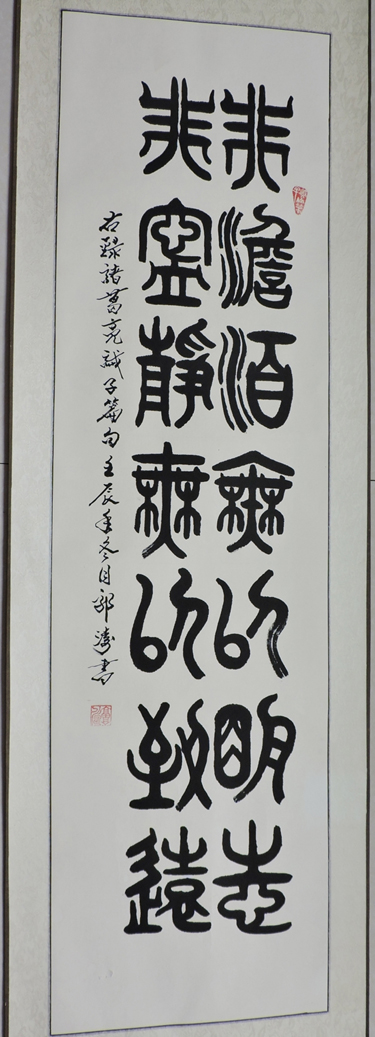 非澹泊無以明志
非寧靜無以致遠
右録諸葛亮誡子篇句壬辰年冬月郭濤書